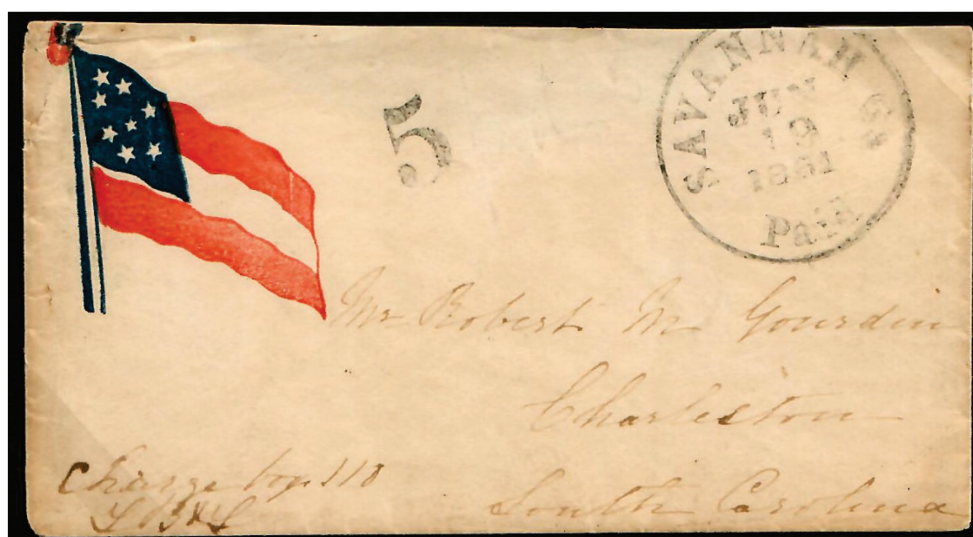 5
SAVANNAH Ga
JUN
19
1861
Paid
Mr Robert M Gourdin
Charleston
South Carolina
Charge box 110